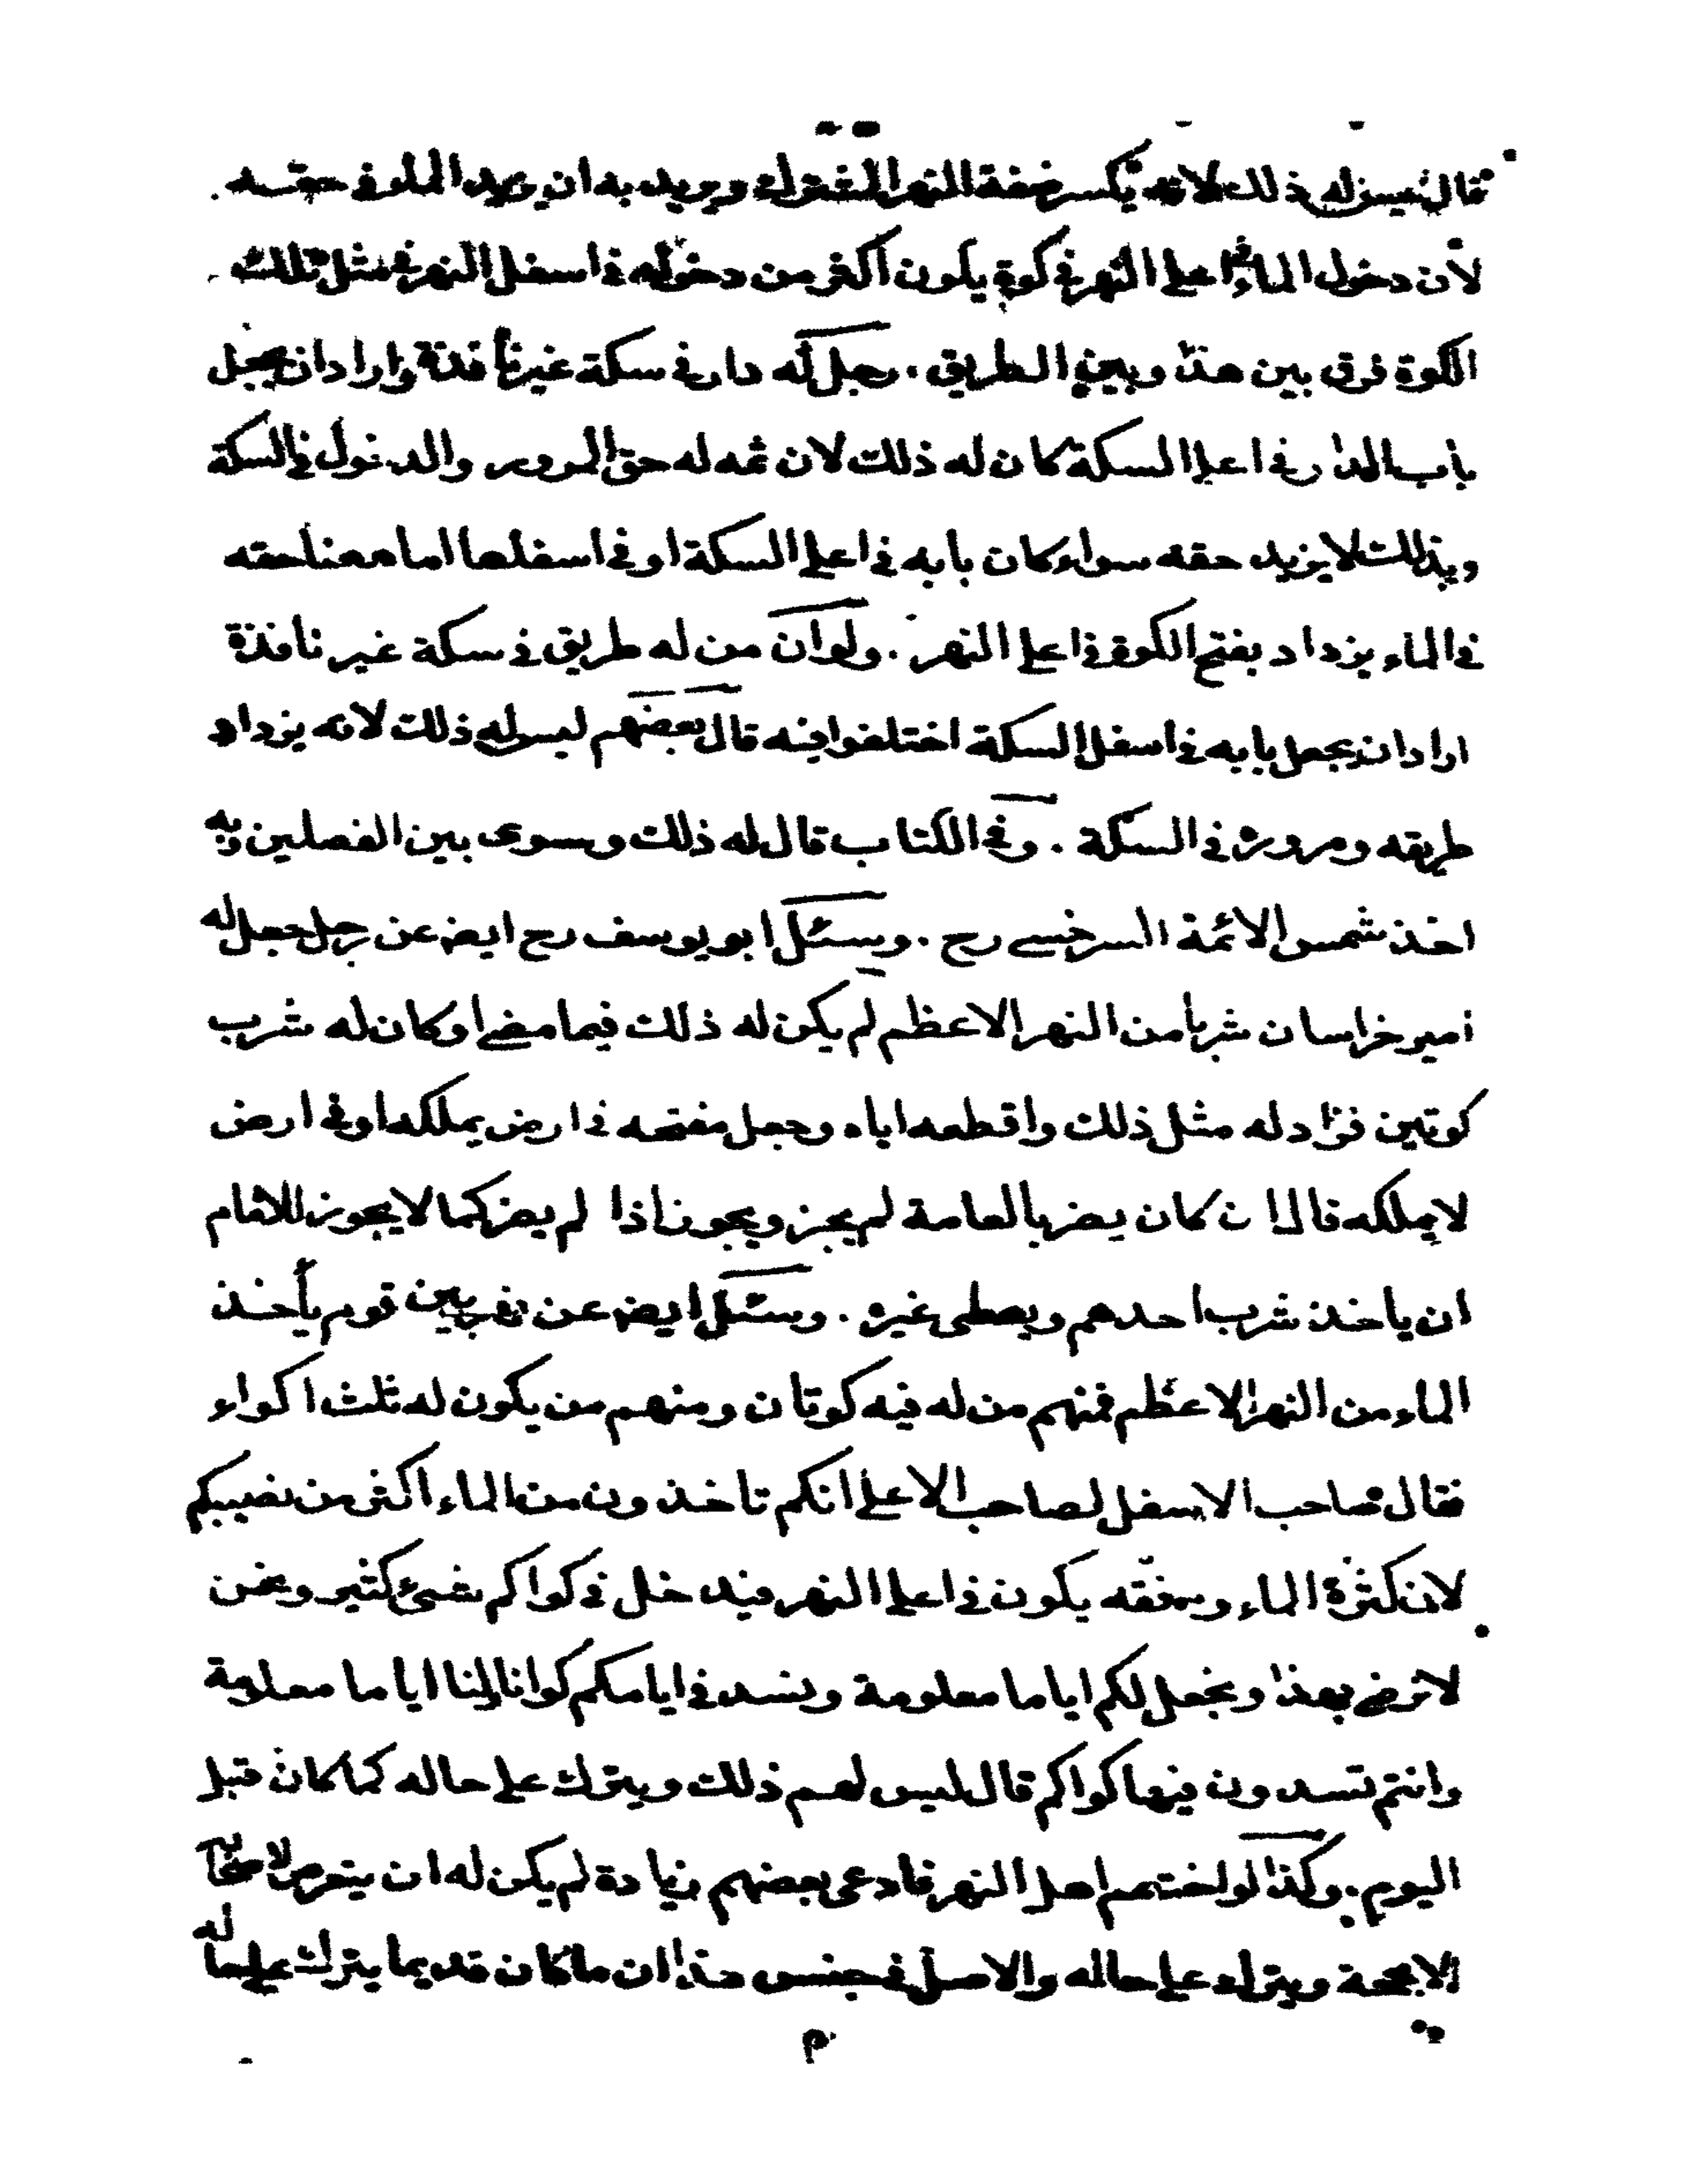 قال ليس له ذلك لانه يكسر ضفة النهر المشترك ويريد به ان يزيد الماء في حقه
لأن دخول الماء في اعلى النهر في كوة يكون اكثر من دخوله في اسفل النهر في مثل تلك
الكوة فرق بين هذا وبين الطريق . رجل له دار في سكة غير نافذة وارادان يجعل
باب الدار في اعلى السكة كان له ذلك لان ثمه له حق المرور والدخول في السكة
وبذلك لا يزيد حقه سواء كان بابه في اعلى السكة او في اسفلها اما ههنا حقه
في الماء يزداد بفتح الكوة في اعلى النهر . ولو ان من له طريق في سكة غير نافذة
ارادان يجعل بابه في اسفل السكة اختلفوا فيه قال بعضهم ليس له ذلك لانه يزداد
طريقه ومروره في السكة . وفي الكتاب قال له ذلك وسوى بين الفصلين وبه
اخذ شمس الائمة السرخسي رح . وسئل ابو يوسف رح ايضا عن رجل جعل له
امير خراسان شربا من النهر الاعظم لم يكن له ذلك فيما مضى او كان له شرب
كوتين فزاد له مثل ذلك واقطعه اياه وجعل مفتحه في ارض يملكه او في ارض
لا يملكه قال ان كان يضر بالعامة لم يجز ويجوز اذا لم يضر كما لا يجوز للامام
ان ياخذ شرب احدهم ويعطى غيره . وسئل ايضا عن نهر بين قوم يأخذ
الماء من النهر الاعظم فمنهم من له فيه كوتان ومنهم من يكون له ثلث اكواء
فقال صاحب الاسفل لصاحب الاعلى انكم تاخذون من الماء اكثر من نصيبكم
لان كثرة الماء ودفقه يكون في اعلى النهر فيدخل في كواكم شئ كثير ونحن
لا نرضى بهذا ونجعل لكم اياما معلومة ونسد في ايامكم كوانا ولنا اياما معلومة
وانتم تسدون فيها كواكم قال ليس لهم ذلك ويترك على حاله كما كان قبل
اليوم . وكذا لو اختصم اهل النهر فادعى بعضهم زيادة لم يكن له ان يتعرض لاصحابه
الا بحجة ويترك على حاله والاصل في جنس هذا ان ما كان قديما يترك على حاله